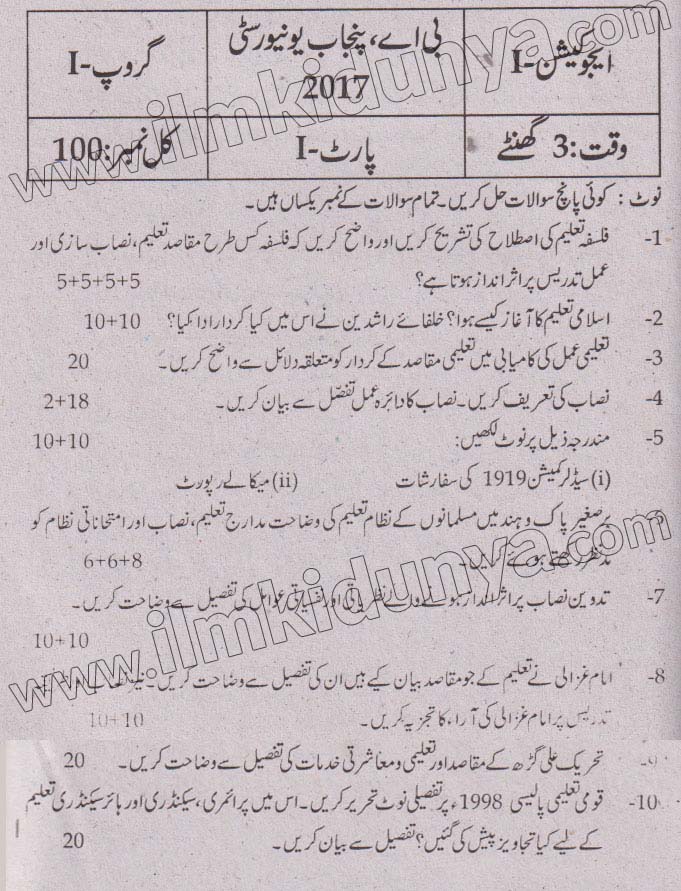 ایجوکیشن-I
بی اے، پنجاب یونیورسٹی
2017
گروپ-I
وقت: 3 گھنٹے
پارٹ-I
کل نمبر: 100
نوٹ: کوئی پانچ سوالات حل کریں۔ تمام سوالات کے نمبر یکساں ہیں۔
1- فلسفہ تعلیم کی اصطلاح کی تشریح کریں اور واضح کریں کہ فلسفہ کس طرح مقاصد تعلیم، نصاب سازی اور
عمل تدریس پر اثر انداز ہوتا ہے؟ 5+5+5+5
2- اسلامی تعلیم کا آغاز کیسے ہوا؟ خلفائے راشدین نے اس میں کیا کردار ادا کیا؟ 10+10
3- تعلیمی عمل کی کامیابی میں تعلیمی مقاصد کے کردار کو متعلقہ دلائل سے واضح کریں۔ 20
4- نصاب کی تعریف کریں۔ نصاب کا دائرہ عمل تفصّل سے بیان کریں۔ 2+18
5- مندرجہ ذیل پر نوٹ لکھیں: 10+10
(i) سیڈلر کمیشن 1919 کی سفارشات (ii) میکالے رپورٹ
برصغیر پاک و ہند میں مسلمانوں کے نظام تعلیم کی وضاحت مدارج تعلیم، نصاب اور امتحاناتی نظام کو
مدنظر رکھتے ہوئے کریں۔ 6+6+8
7- تدوین نصاب پر اثر انداز ہونے والے نظریاتی اور نفسیاتی عوامل کی تفصیل سے وضاحت کریں۔
10+10
8- امام غزالی نے تعلیم کے جو مقاصد بیان کیے ہیں ان کی تفصیل سے وضاحت کریں۔ نیز
تدریس پر امام غزالی کی آراء کا تجزیہ کریں۔ 10+10
9- تحریک علی گڑھ کے مقاصد اور تعلیمی و معاشرتی خدمات کی تفصیل سے وضاحت کریں۔ 20
10- قومی تعلیمی پالیسی 1998ء پر تفصیلی نوٹ تحریر کریں۔ اس میں پرائمری، سیکنڈری اور ہائر سیکنڈری تعلیم
کے لیے کیا تجاویز پیش کی گئیں؟ تفصیل سے بیان کریں۔ 20
www.ilmkidunya.com
www.ilmkidunya.com